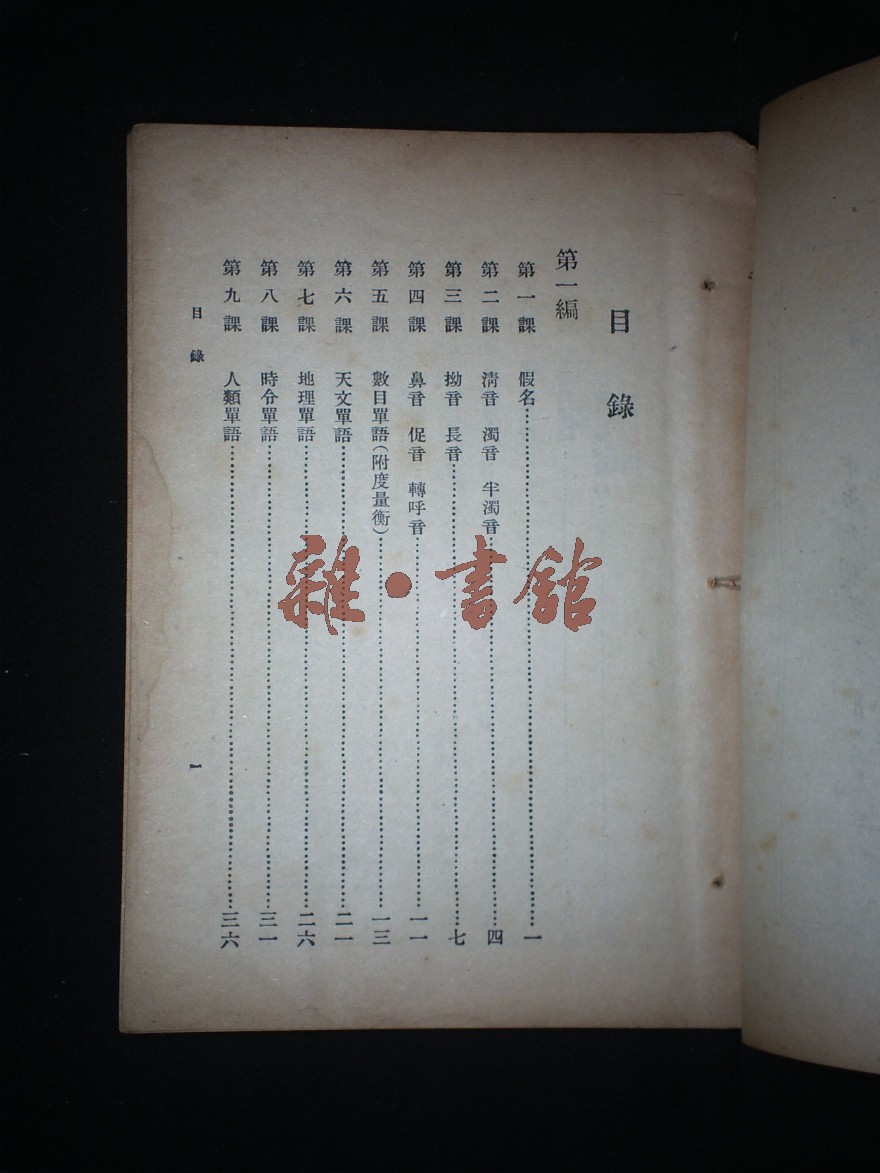 目錄
第一編
第一課 假名……一
第二課 淸音 濁音 半濁音……四
第三課 拗音 長音……七
第四課 鼻音 促音 轉呼音……一一
第五課 數目單語(附度量衡)……一三
第六課 天文單語……二一
第七課 地理單語……二六
第八課 時令單語……三一
第九課 人類單語……三六
目錄
一
雜·書館